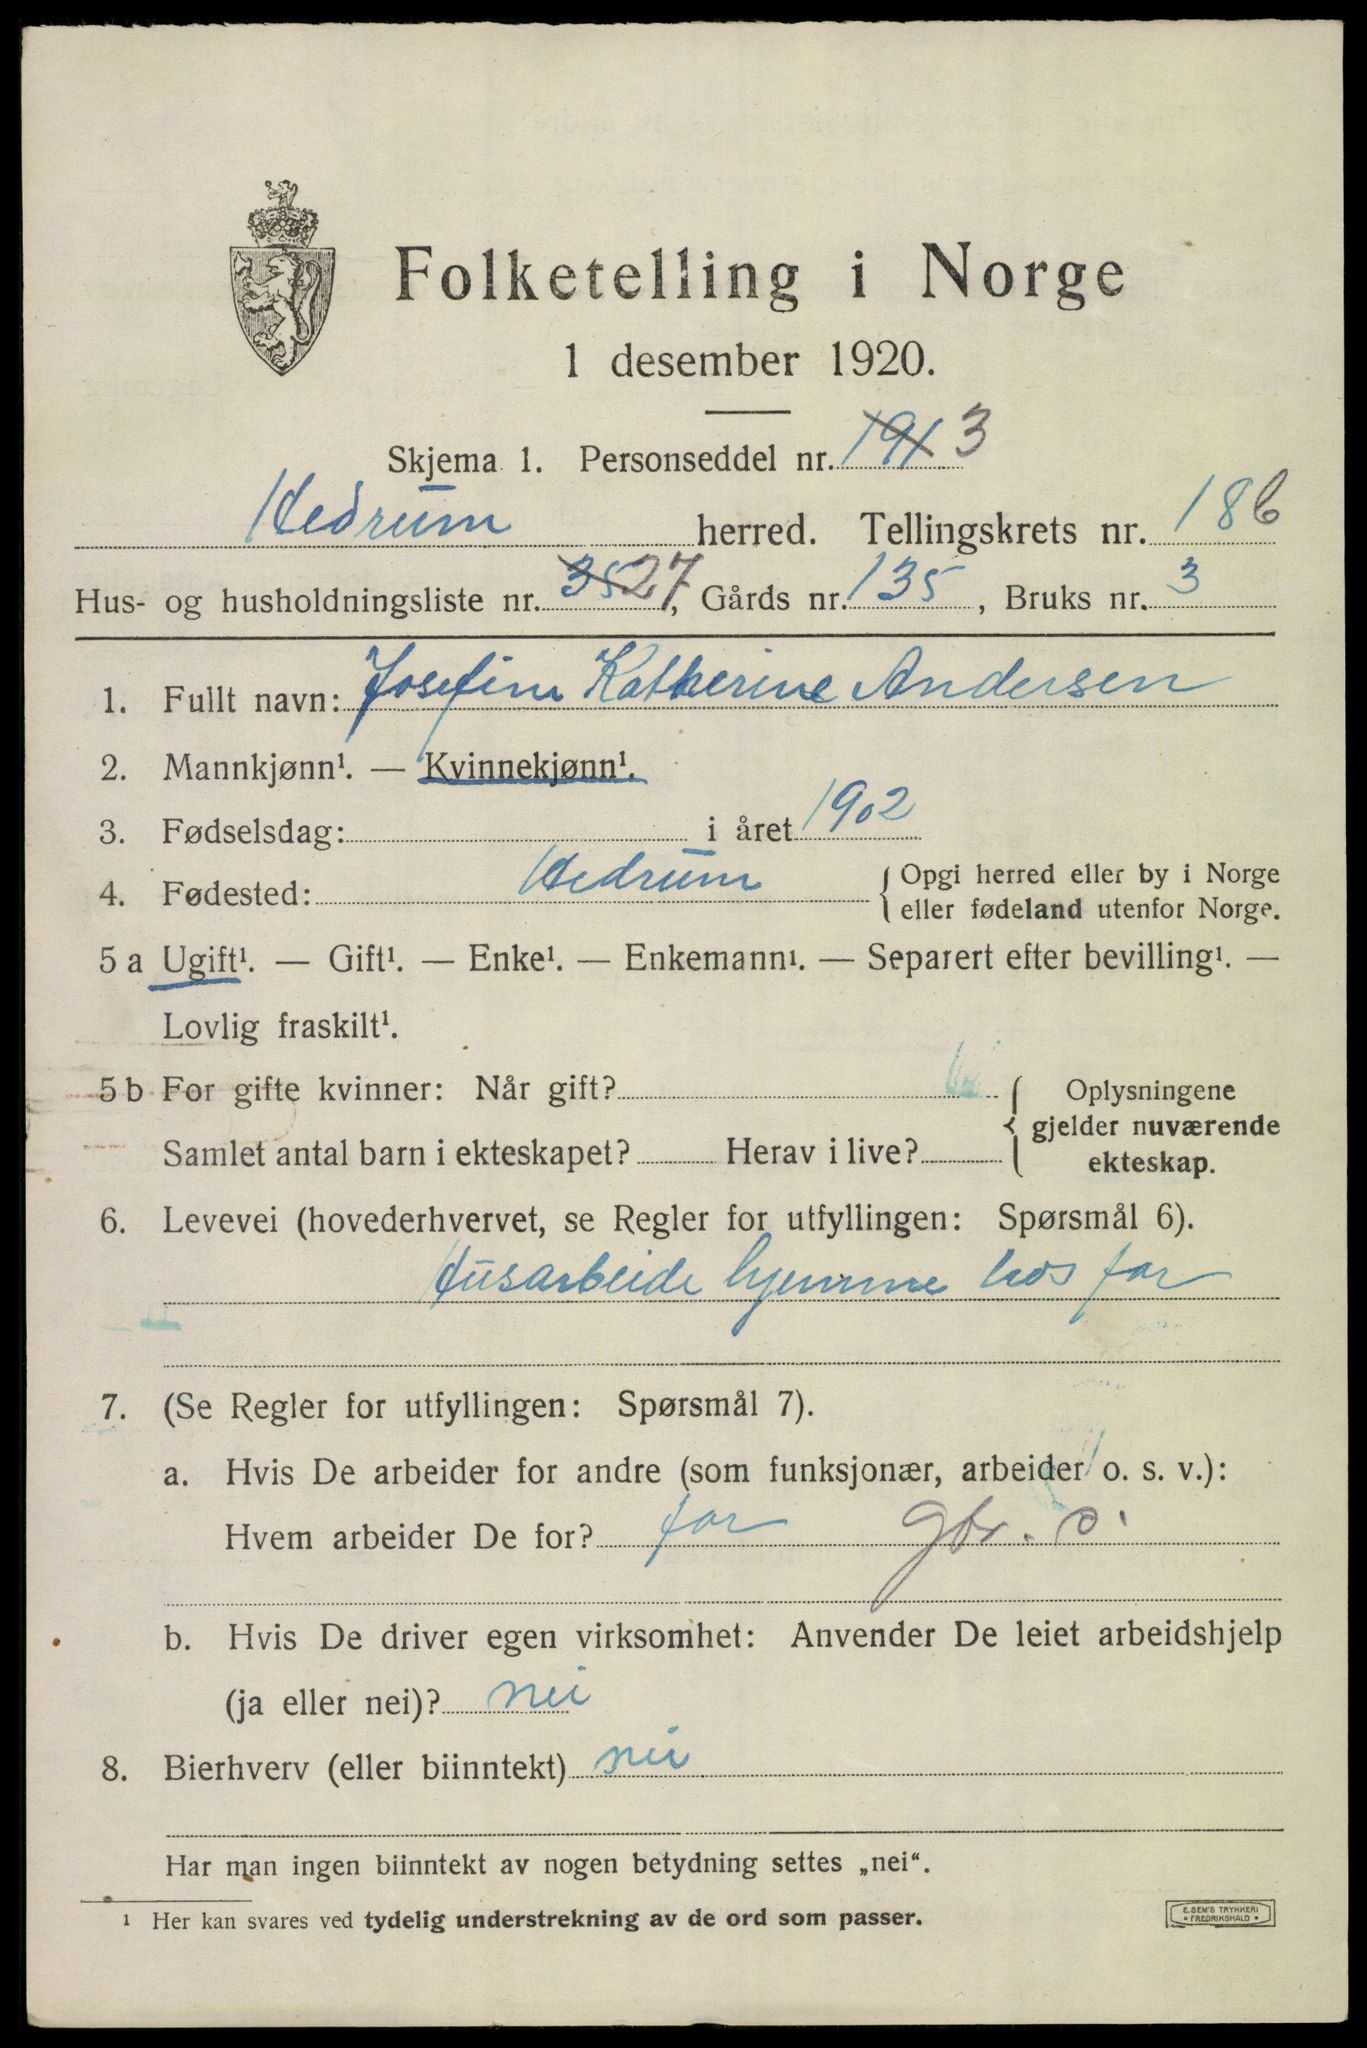 Folketelling i Norge
1 desember 1920.
Skjema 1. Personseddel nr. 191 3
Hedrum herred. Tellingskrets nr. 18 6
Hus- og husholdningsliste nr. 35 27, Gårds nr. 135, Bruks nr. 3
1. Fullt navn: Josefine Katherine Andersen
2. Mannkjønn¹. — Kvinnekjønn¹.
3. Fødselsdag: i året 1902
4. Fødested: Hedrum { Opgi herred eller by i Norge
eller fødeland utenfor Norge.
5 a Ugift¹. — Gift¹. — Enke¹. — Enkemann¹. — Separert efter bevilling¹. —
Lovlig fraskilt¹.
5 b For gifte kvinner: Når gift?
Samlet antal barn i ekteskapet? Herav i live?
{ Oplysningene
gjelder nuværende
ekteskap.
6. Levevei (hovederhvervet, se Regler for utfyllingen: Spørsmål 6).
Husarbeide hjemme hos far
7. (Se Regler for utfyllingen: Spørsmål 7).
a. Hvis De arbeider for andre (som funksjonær, arbeider o. s. v.):
Hvem arbeider De for? far gbr. d.
b. Hvis De driver egen virksomhet: Anvender De leiet arbeidshjelp
(ja eller nei)? nei
8. Bierhverv (eller biinntekt) nei
Har man ingen biinntekt av nogen betydning settes „nei“.
¹ Her kan svares ved tydelig understrekning av de ord som passer.
E. SEM'S TRYKKERI
• FREDRIKSHALD •